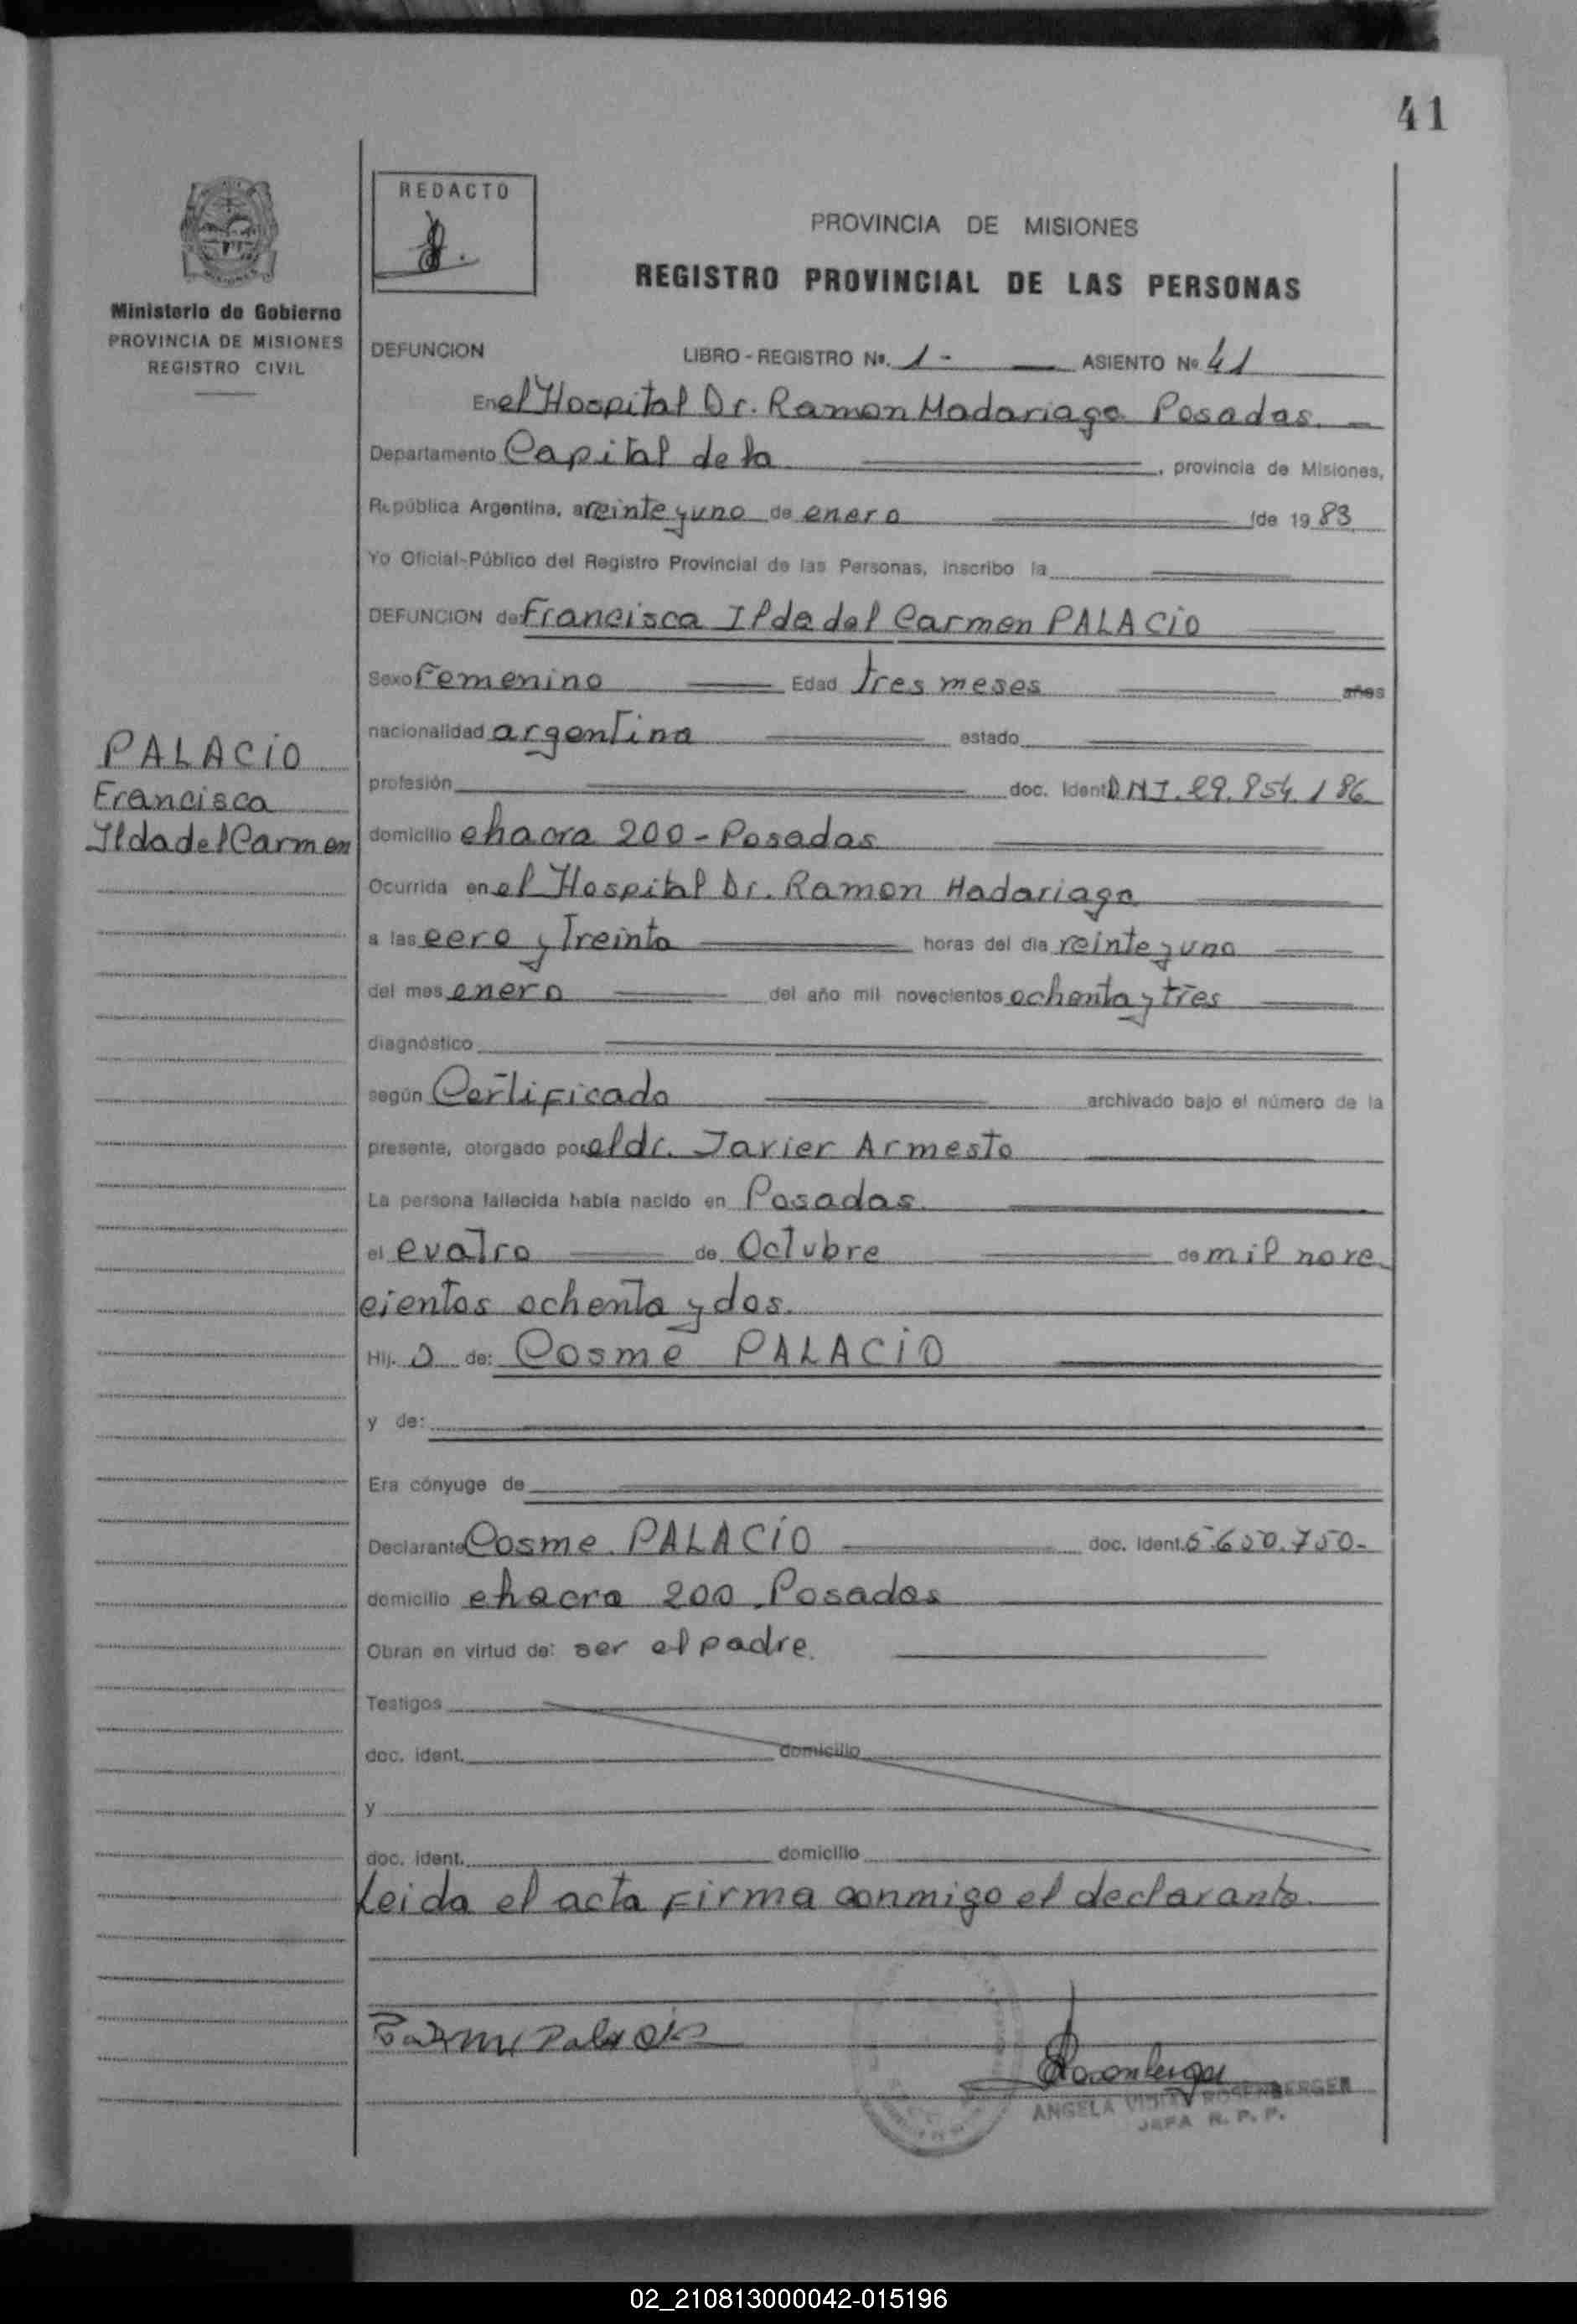 41
REDACTO
PROVINCIA DE MISIONES
REGISTRO PROVINCIAL DE LAS PERSONAS
Ministerio de Gobierno
PROVINCIA DE MISIONES
REGISTRO CIVIL
DEFUNCION LIBRO - REGISTRO Nº. 1 - ASIENTO Nº 41
En el Hospital Dr. Ramon Madariaga Posadas.
Departamento Capital de la , provincia de Misiones,
República Argentina, a veinte y uno de enero de 1983
Yo Oficial-Público del Registro Provincial de las Personas, inscribo la
DEFUNCION de Francisca Ilda del Carmen PALACiO
Sexo Femenino Edad tres meses años
nacionalidad argentina estado
PALACiO
Francisca
Ilda del Carmen
profesión doc. Ident. DNI. 29.854.186
domicilio chacra 200 - Posadas
Ocurrida en el Hospital Dr. Ramon Madariaga
a las cero y treinta horas del día veinte y uno
del mes enero del año mil novecientos ochenta y tres
diagnóstico
según Certificado archivado bajo el número de la
presente, otorgado por el dr. Javier Armesto
La persona fallecida había nacido en Posadas.
el cuatro de Octubre de mil nove
cientos ochenta y dos.
Hij. a de: Cosme PALACiO
y de:
Era cónyuge de
Declarante Cosme PALACiO doc. Ident. 5.650.750-
domicilio chacra 200 Posadas
Obran en virtud de: ser el padre.
Testigos
doc. ident. domicilio
y
doc. ident. domicilio
Leida el acta firma conmigo el declarante.
ANGELA ROSENBERGER
JEFA R. P. P.
02_210813000042-015196